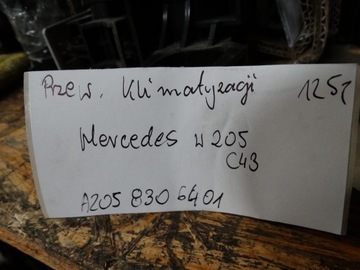 Przew. Klimatyzacji 125,-
Mercedes W205
C43
A205 830 6401